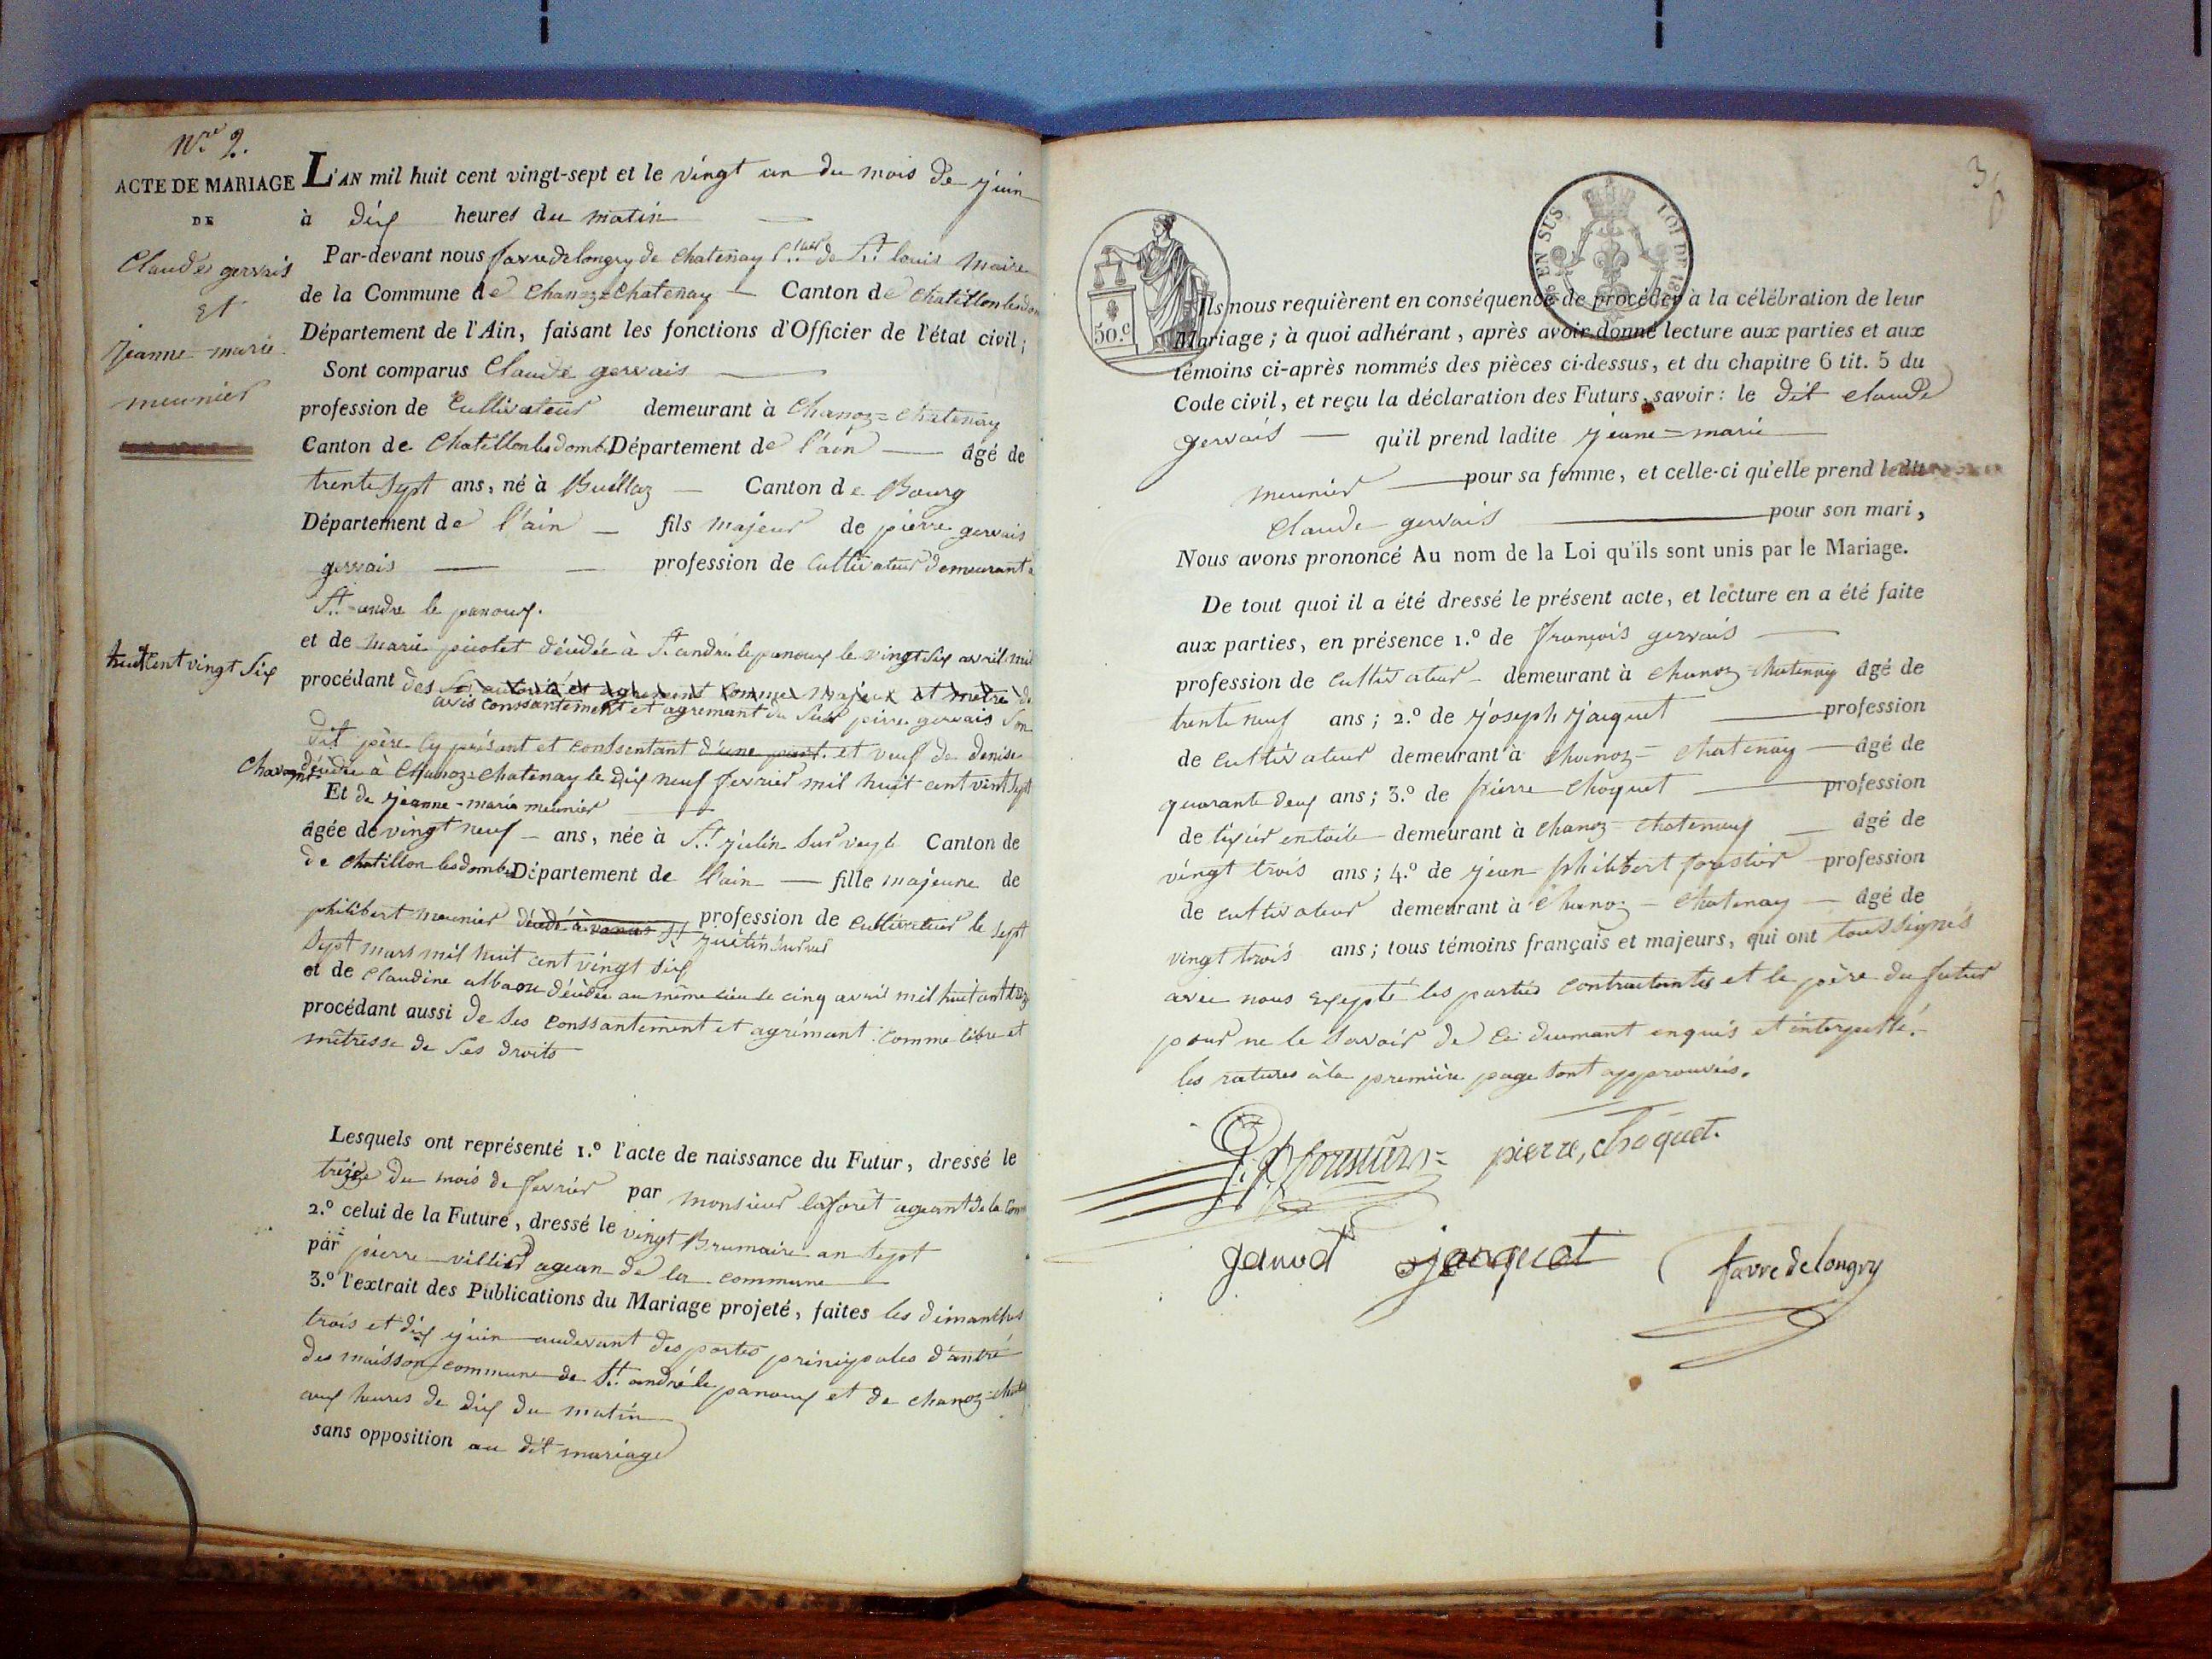 Nro 2.
ACTE DE MARIAGE
DE
Claude gervais
Et
jeanne-marie
meunier
L'AN mil huit cent vingt-sept et le vingt un du mois de juin
à dix heures du matin
Par-devant nous favre delongry de Chatenay de St louis Maire
de la Commune de Chanoz=Chatenay Canton de Chatillon les dom
Département de l'Ain, faisant les fonctions d'Officier de l'état civil;
Sont comparus Claude gervais
profession de Cultivateur demeurant à Chanoz=Chatenay
Canton de Chatillon les domb Département de l'ain âgé de
trente sept ans, né à Buéllaz Canton de Bourg
Département de l'ain fils majeur de pierre gervais
gervais profession de Cultivateur demeurant a
St andre le panoux.
et de marie picolet décédée à St andré le panoux le vingt six avril mil
huit cent vingt Six
procédant des Ses autorité et agrement comme majeur et metre de
avis conssantement et agremant du Sieur pierre gervais Son
dit père Cy présant et conssentant d'une part. et veuf de denise
Chavagnat décédée à Chanoz=Chatenay le dix neuf fevrier mil huit cent vint Sept
Et de jeanne-marie meunier
âgée de vingt neuf ans, née à St julin sur veyle Canton de
de chatillon les domb Département de l'ain fille majeure de
philibert meunier décédé à vonnas St julin Sur vel profession de cultivateur le sept
Sept mars mil huit cent vingt six
et de Claudine albaon décédée au même lieu le cinq avril mil huit cent
procédant aussi de Ses conssantement et agrémant comme libre et
mêtresse de Ses droits
Lesquels ont représenté 1.º l'acte de naissance du Futur, dressé le
treize du mois de fevrier par monsieur laforêt ageant de la Com
2.º celui de la Future, dressé le vingt Brumaire an sept
par pierre villier agean de la commune
3.º l'extrait des Publications du Mariage projeté, faites les dimanches
trois et dix juin audevant des portes prinipales d'antré
des maisson commune de St andré le panoux et de chanoz=chat
aux heures de dix du matin
sans opposition au dit mariage
3
50.C
EN SUS
LOI DE 18
Ils nous requièrent en conséquence de procéder à la célébration de leur
Mariage; à quoi adhérant, après avoir donné lecture aux parties et aux
témoins ci-après nommés des pièces ci-dessus, et du chapitre 6 tit. 5 du
Code civil, et reçu la déclaration des Futurs, savoir: le dit claude
gervais qu'il prend ladite jeane=marie
meunier pour sa femme, et celle-ci qu'elle prend ledit
Claude gervais pour son mari,
Nous avons prononcé Au nom de la Loi qu'ils sont unis par le Mariage.
De tout quoi il a été dressé le présent acte, et lecture en a été faite
aux parties, en présence 1.º de françois gervais
profession de cultivateur demeurant à chanoz=chatenay âgé de
trente neuf ans; 2.º de joseph jacquet profession
de cultivateur demeurant à chanoz=chatenay âgé de
quarante deux ans; 3.º de pierre Choquet profession
de tixier en toile demeurant à chanoz=chatenay âgé de
vingt trois ans; 4.º de jean philibert forestier profession
de cultivateur demeurant à chanoz=chatenay âgé de
vingt trois ans; tous témoins français et majeurs, qui ont tous signés
avec nous exepté les parties contractantes et le père du futur
pour ne le savoir de ce dument enquis et interpellé.
les ratures à la premiere page sont approuvées.
pierre, choquet.
jacquet
favre delongry